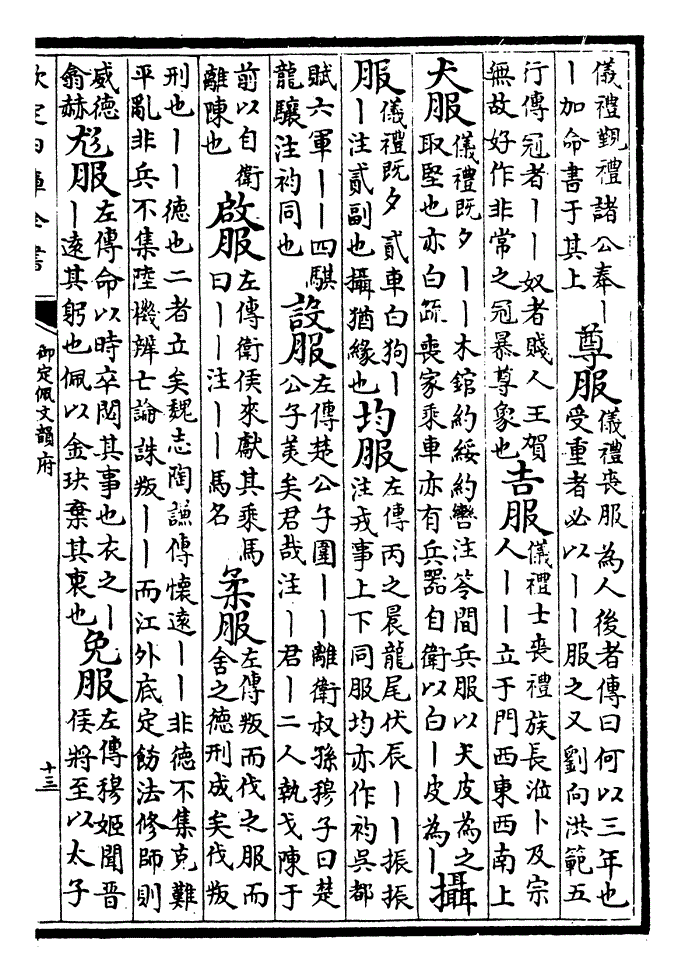 儀禮覲禮諸公奉丨
丨加命書于其上
尊服
儀禮喪服為人後者傳曰何以三年也
受重者必以丨丨服之又劉向洪範五
行傳冠者丨丨奴者賤人王賀
無故好作非常之冠暴尊象也
吉服
儀禮士喪禮族長涖卜及宗
人丨丨立于門西東西南上
犬服
儀禮既夕丨丨木錧約綏約轡注笭間兵服以犬皮為之
取堅也亦白疏喪家乘車亦有兵器自衛以白丨皮為丨
攝
服
儀禮既夕貳車白狗丨
丨注貳副也攝猶緣也
均服
左傳丙之晨龍尾伏辰丨丨振振
注戎事上下同服均亦作袀吳都
賦六軍丨丨四騏
龍驤注袀同也
設服
左傳楚公子圍丨丨離衛叔孫穆子曰楚
公子美矣君哉注丨君丨二人執戈陳于
前以自衛
離陳也
啟服
左傳衛侯來獻其乘馬
曰丨丨注丨丨馬名
柔服
左傳叛而伐之服而
舍之德刑成矣伐叛
刑也丨丨德也二者立矣魏志陶謙傳懷遠丨丨非德不集克難
平亂非兵不集陸機辨亡論誅叛丨丨而江外底定飭法修師則
威德
翕赫
尨服
左傳命以時卒閟其事也衣之丨
丨遠其躬也佩以金玦棄其衷也
免服
左傳穆姬聞晉
侯將至以太子
欽定四庫全書
御定佩文韻府
十三